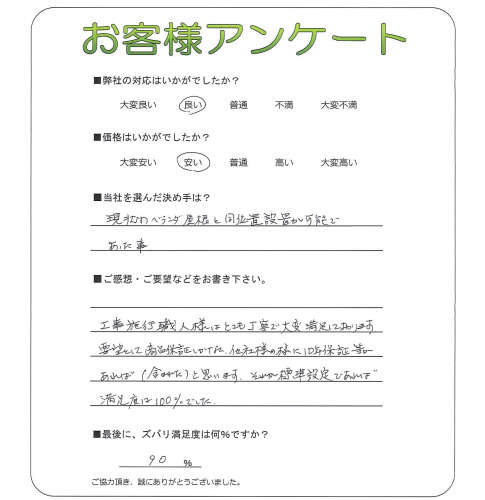 お客様アンケート
■弊社の対応はいかがでしたか?
大変良い 良い 普通 不満 大変不満
■価格はいかがでしたか?
大変安い 安い 普通 高い 大変高い
■当社を選んだ決め手は?
現状のベランダ屋根と同位置設置が可能で
あった事
■ご感想・ご要望などをお書き下さい。
工事施行職人様はとても丁寧で大変満足しております
要望として商品保証しかなく、他社様の様に10年保証等が
あれば(含めた)と思います。それが標準設定であれば
満足度は100%でした
■最後に、ズバリ満足度は何%ですか?
90 %
ご協力頂き、誠にありがとうございました。